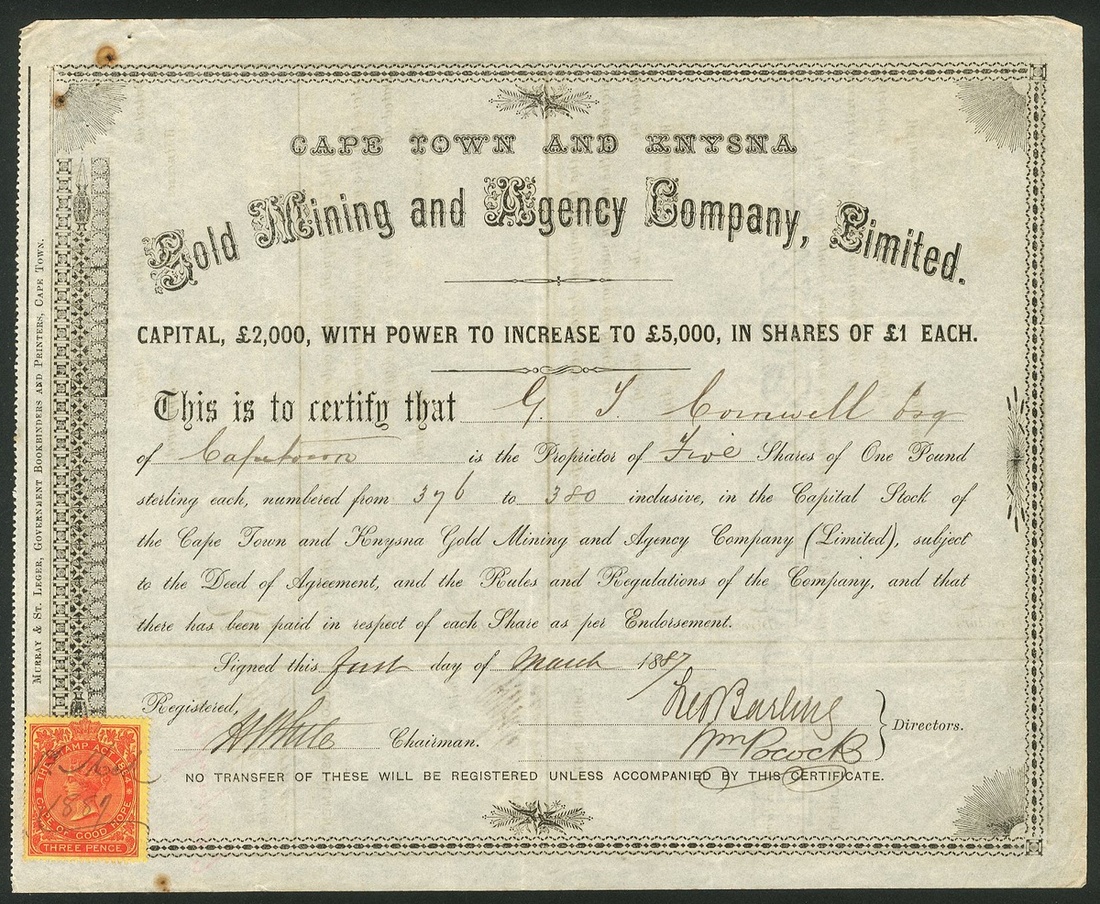 CAPE TOWN AND KNYSNA
Gold Mining and Agency Company, Limited.
CAPITAL, £2,000, WITH POWER TO INCREASE TO £5,000, IN SHARES OF £1 EACH.
This is to certify that G. T. Cornwell Esq
of Capetown is the Proprietor of Five Shares of One Pound
sterling each, numbered from 376 to 380 inclusive, in the Capital Stock of
the Cape Town and Knysna Gold Mining and Agency Company (Limited), subject
to the Deed of Agreement, and the Rules and Regulations of the Company, and that
there has been paid in respect of each Share as per Endorsement.
Signed this first day of March 1887
Registered,
Geo Barling
Wm Pocock
Directors.
Chairman.
NO TRANSFER OF THESE WILL BE REGISTERED UNLESS ACCOMPANIED BY THIS CERTIFICATE.
MURRAY & ST. LEGER, GOVERNMENT BOOKBINDERS AND PRINTERS, CAPE TOWN.
THE STAMP ACT
1887
CAPE OF GOOD HOPE
THREE PENCE